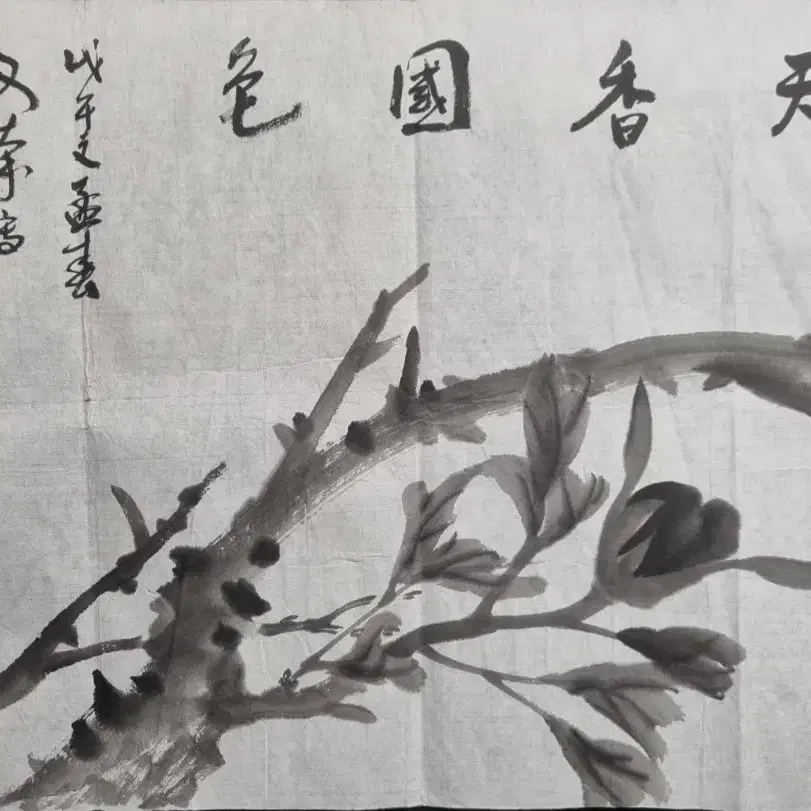 天香國色
戊午之孟春
文榮寫